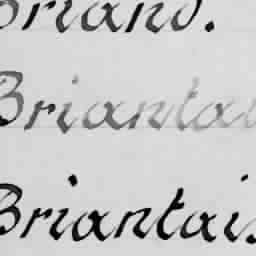 Briand.
Briantai
Briantais